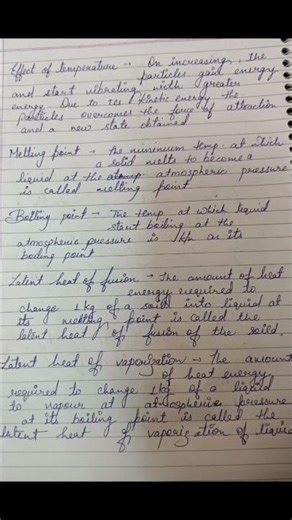 Effect of temperature → On increasing, the
particles gain energy
and start vibrating with greater
energy Due to kinetic energy the
particles overcomes the force of attraction
and a new state obtained
Melting point → the minimum temp. at which
a solid melts to become a
liquid at the atmospheric pressure
is called melting point
Boiling point → The temp at which liquid
start boiling at the
atmospheric pressure is k/n as its
boiling point
Latent heat of fusion → The amount of heat
energy required to
change 1 kg of a solid into liquid at
its melting point is called the
latent heat of fusion of the soild.
Latent heat of vaporization → The amount
of heat energy
required to change 1kg of a liquid
to vapour at atmospheric pressure
at its boiling point is called the
latent heat of vaporization of liquid